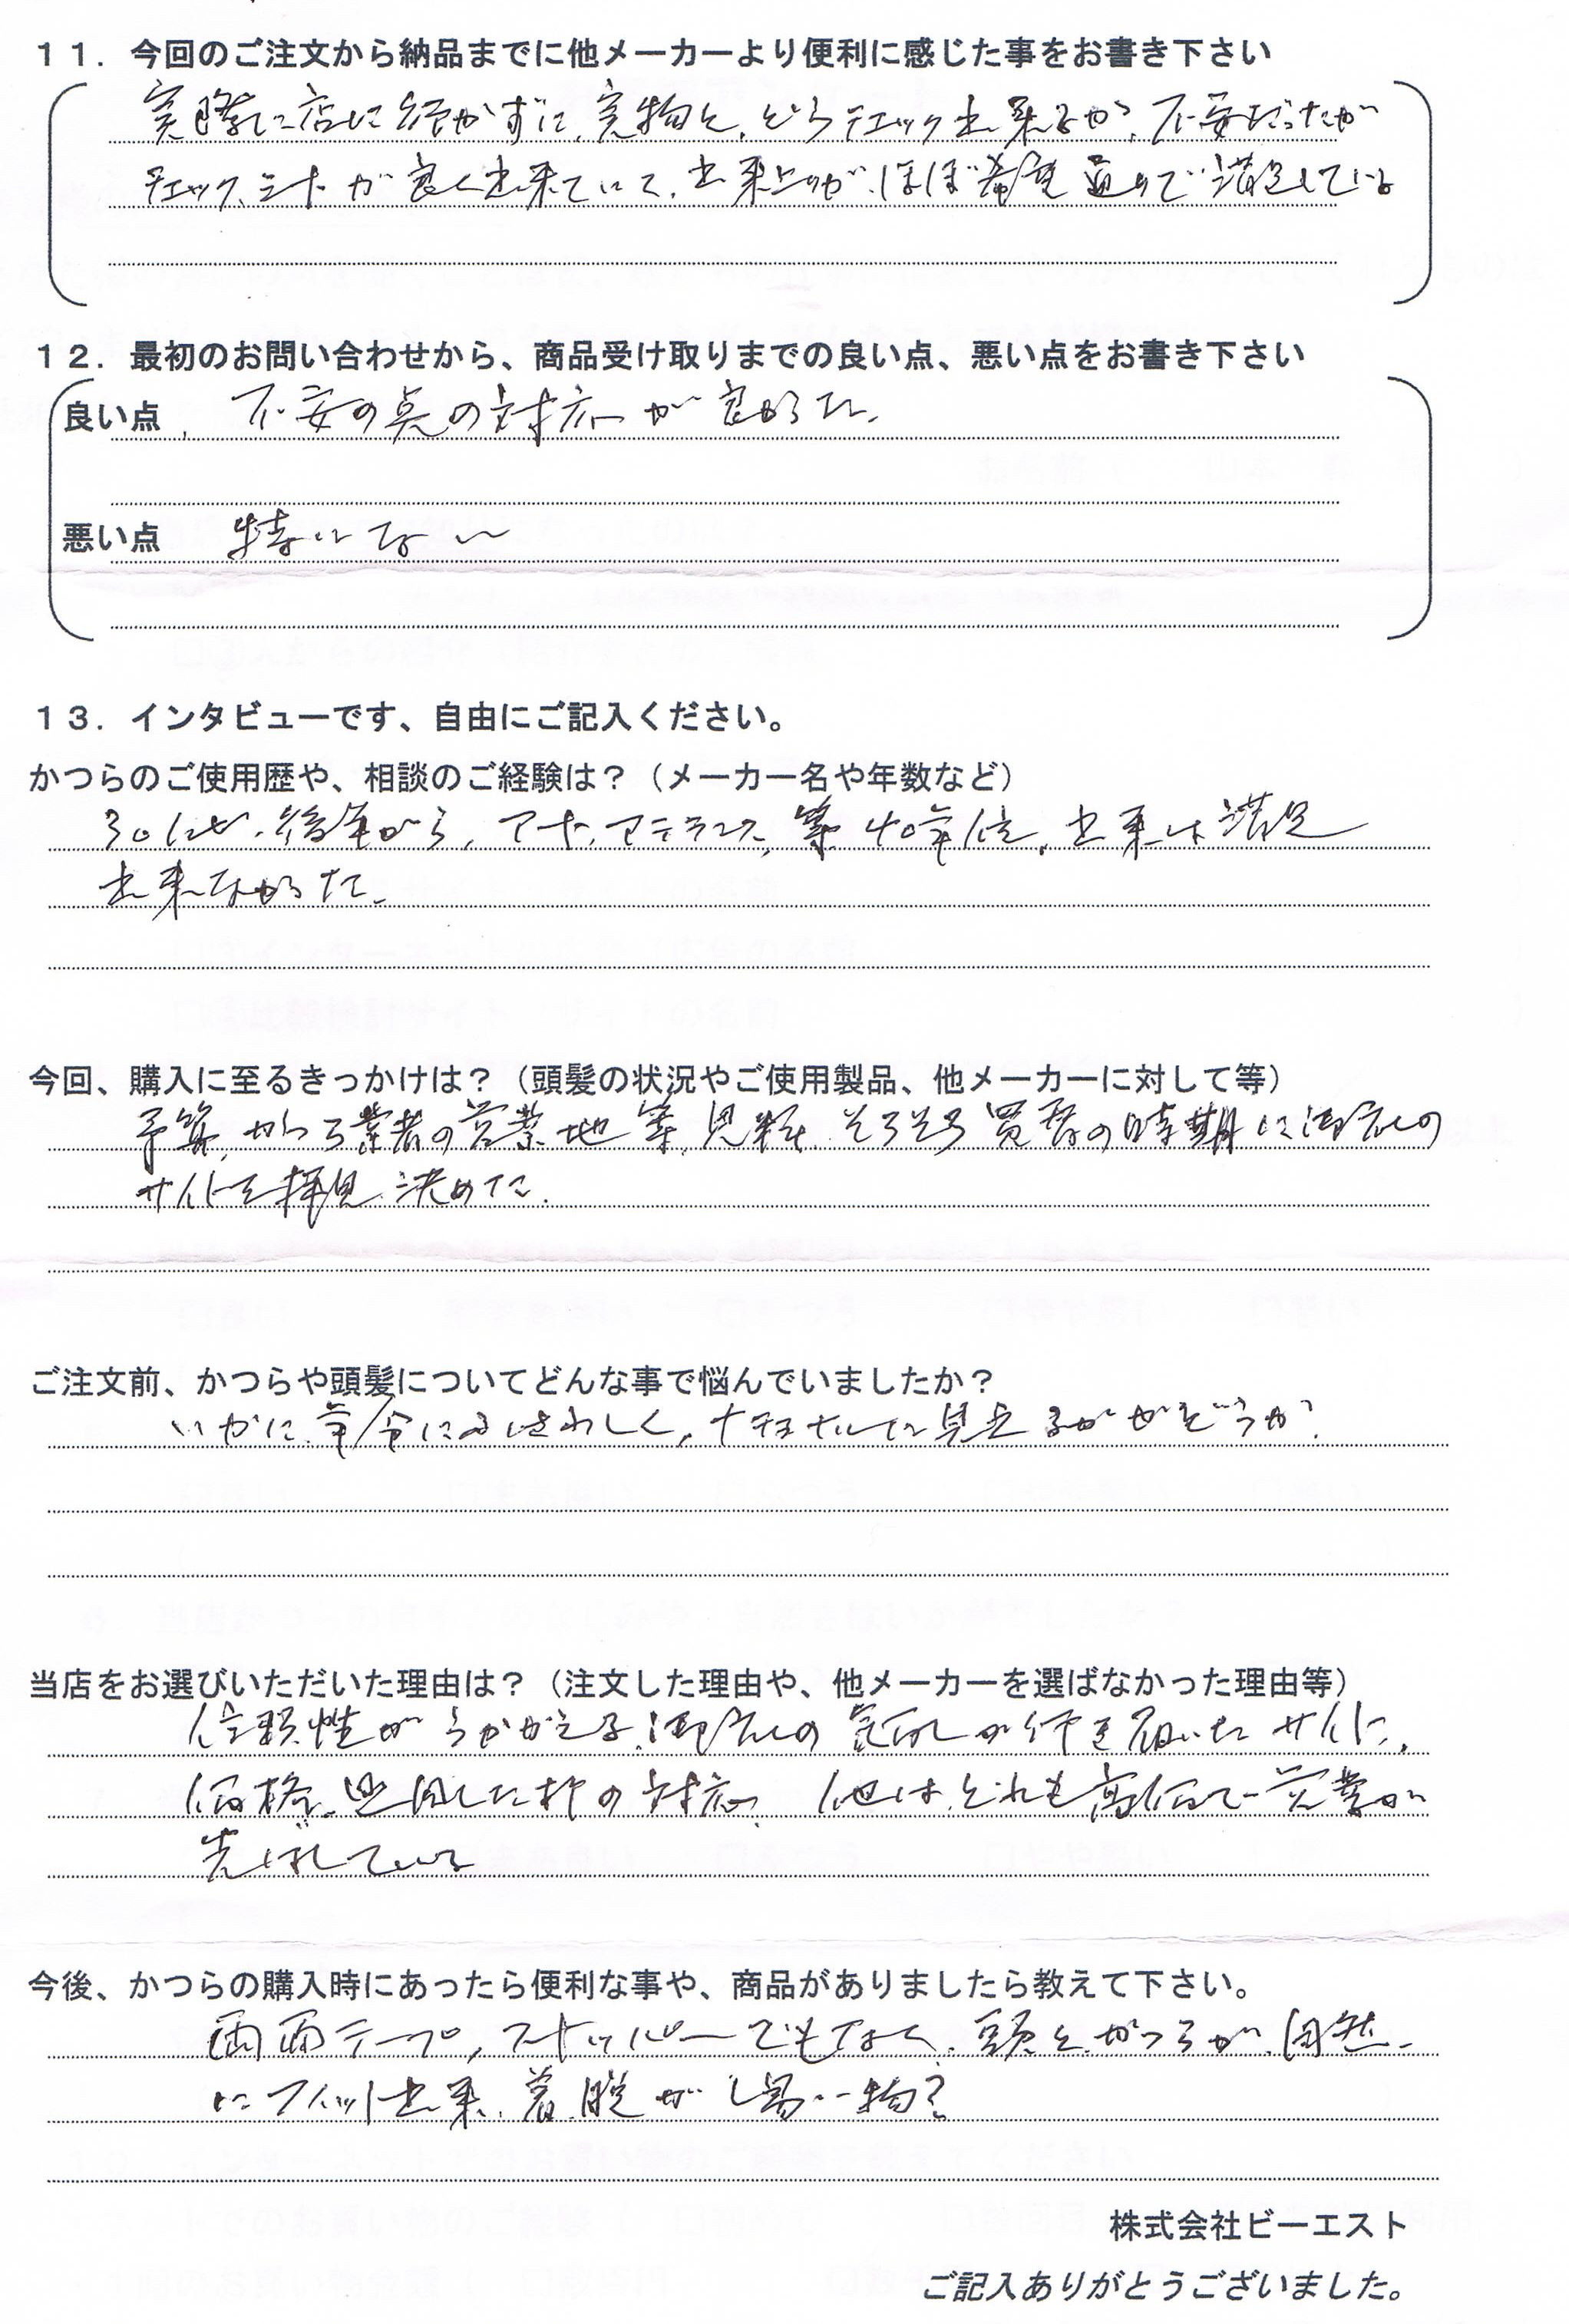 11．今回のご注文から納品までに他メーカーより便利に感じた事をお書き下さい
実際に店に行かずに、実物を、どうチェック出来るか、不安だったが
チェックシートが良く出来ていて、出来上りが、ほぼ希望通りで満足している
12．最初のお問い合わせから、商品受け取りまでの良い点、悪い点をお書き下さい
良い点 不安の点の対応が良かった。
悪い点 特にない
13．インタビューです、自由にご記入ください。
かつらのご使用歴や、相談のご経験は？（メーカー名や年数など）
30代、後半から、アート、アデランス、等 40年位。出来は満足
出来なかった。
今回、購入に至るきっかけは？（頭髪の状況やご使用製品、他メーカーに対して等）
予算、かつら業者の営業地等、見 そろそろ買替の時期に御社の
サイトを拝見、決めた。
ご注文前、かつらや頭髪についてどんな事で悩んでいましたか？
いかに、年令にふさわしく、ナチュナルに見え るかがどうか？
当店をお選びいただいた理由は？（注文した理由や、他メーカーを選ばなかった理由等）
信頼性がうかがえる、御社の サイト、
価格、 の対応、他は、どれも高価で営業が
先ばしている
今後、かつらの購入時にあったら便利な事や、商品がありましたら教えて下さい。
両面テープ，ストッパーでもなく、頭と、かつらが、自然
にフィット出来、着脱がし易い物？
株式会社ビーエスト
ご記入ありがとうございました。